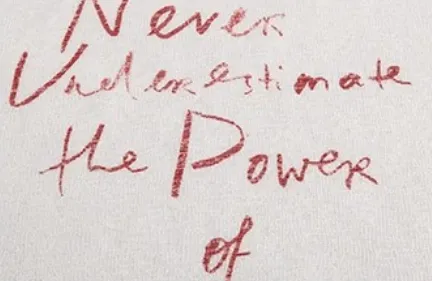 Never
Underestimate
the Power
of